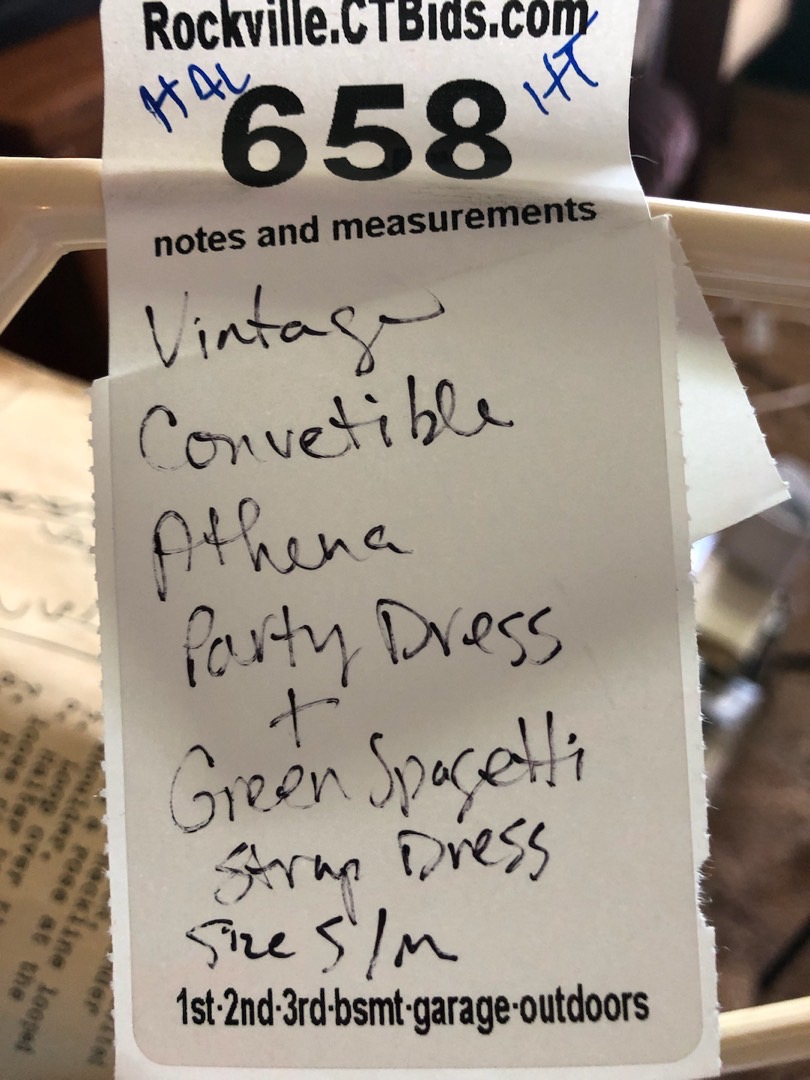 Rockville.CTBids.com
658
notes and measurements
Vintage
Convetible
Athena
Party Dress
+
Green Spagetti
Strap Dress
Size S/M
1st·2nd·3rd·bsmt·garage·outdoors